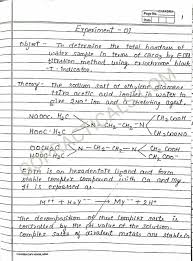 Experiment - 07
Object - To determine the total hardness of
water sample in terms of CaCO3 by EDTA
titration method using eriochrome black
-T- Indicator.
Theory - The sodium salt of ethylene diamine
tetra acetic acid ionises in water to
give 2Na+ ion and a chelating agent.
NaOOC. H2C CH2-COOH
N-CH2-CH2-N
HOOC-H2C CH2-COONa
N-CH2-CH2-N
EDTA is an hexadentate ligand and form
stable complex compound with Ca and Mg
It is exposed as:
M++ + H2Y-- → My-- + 2H+
The decomposition of these complex salts is
controlled by pH value of the solution.
Complex salts of divalent metals are stable in